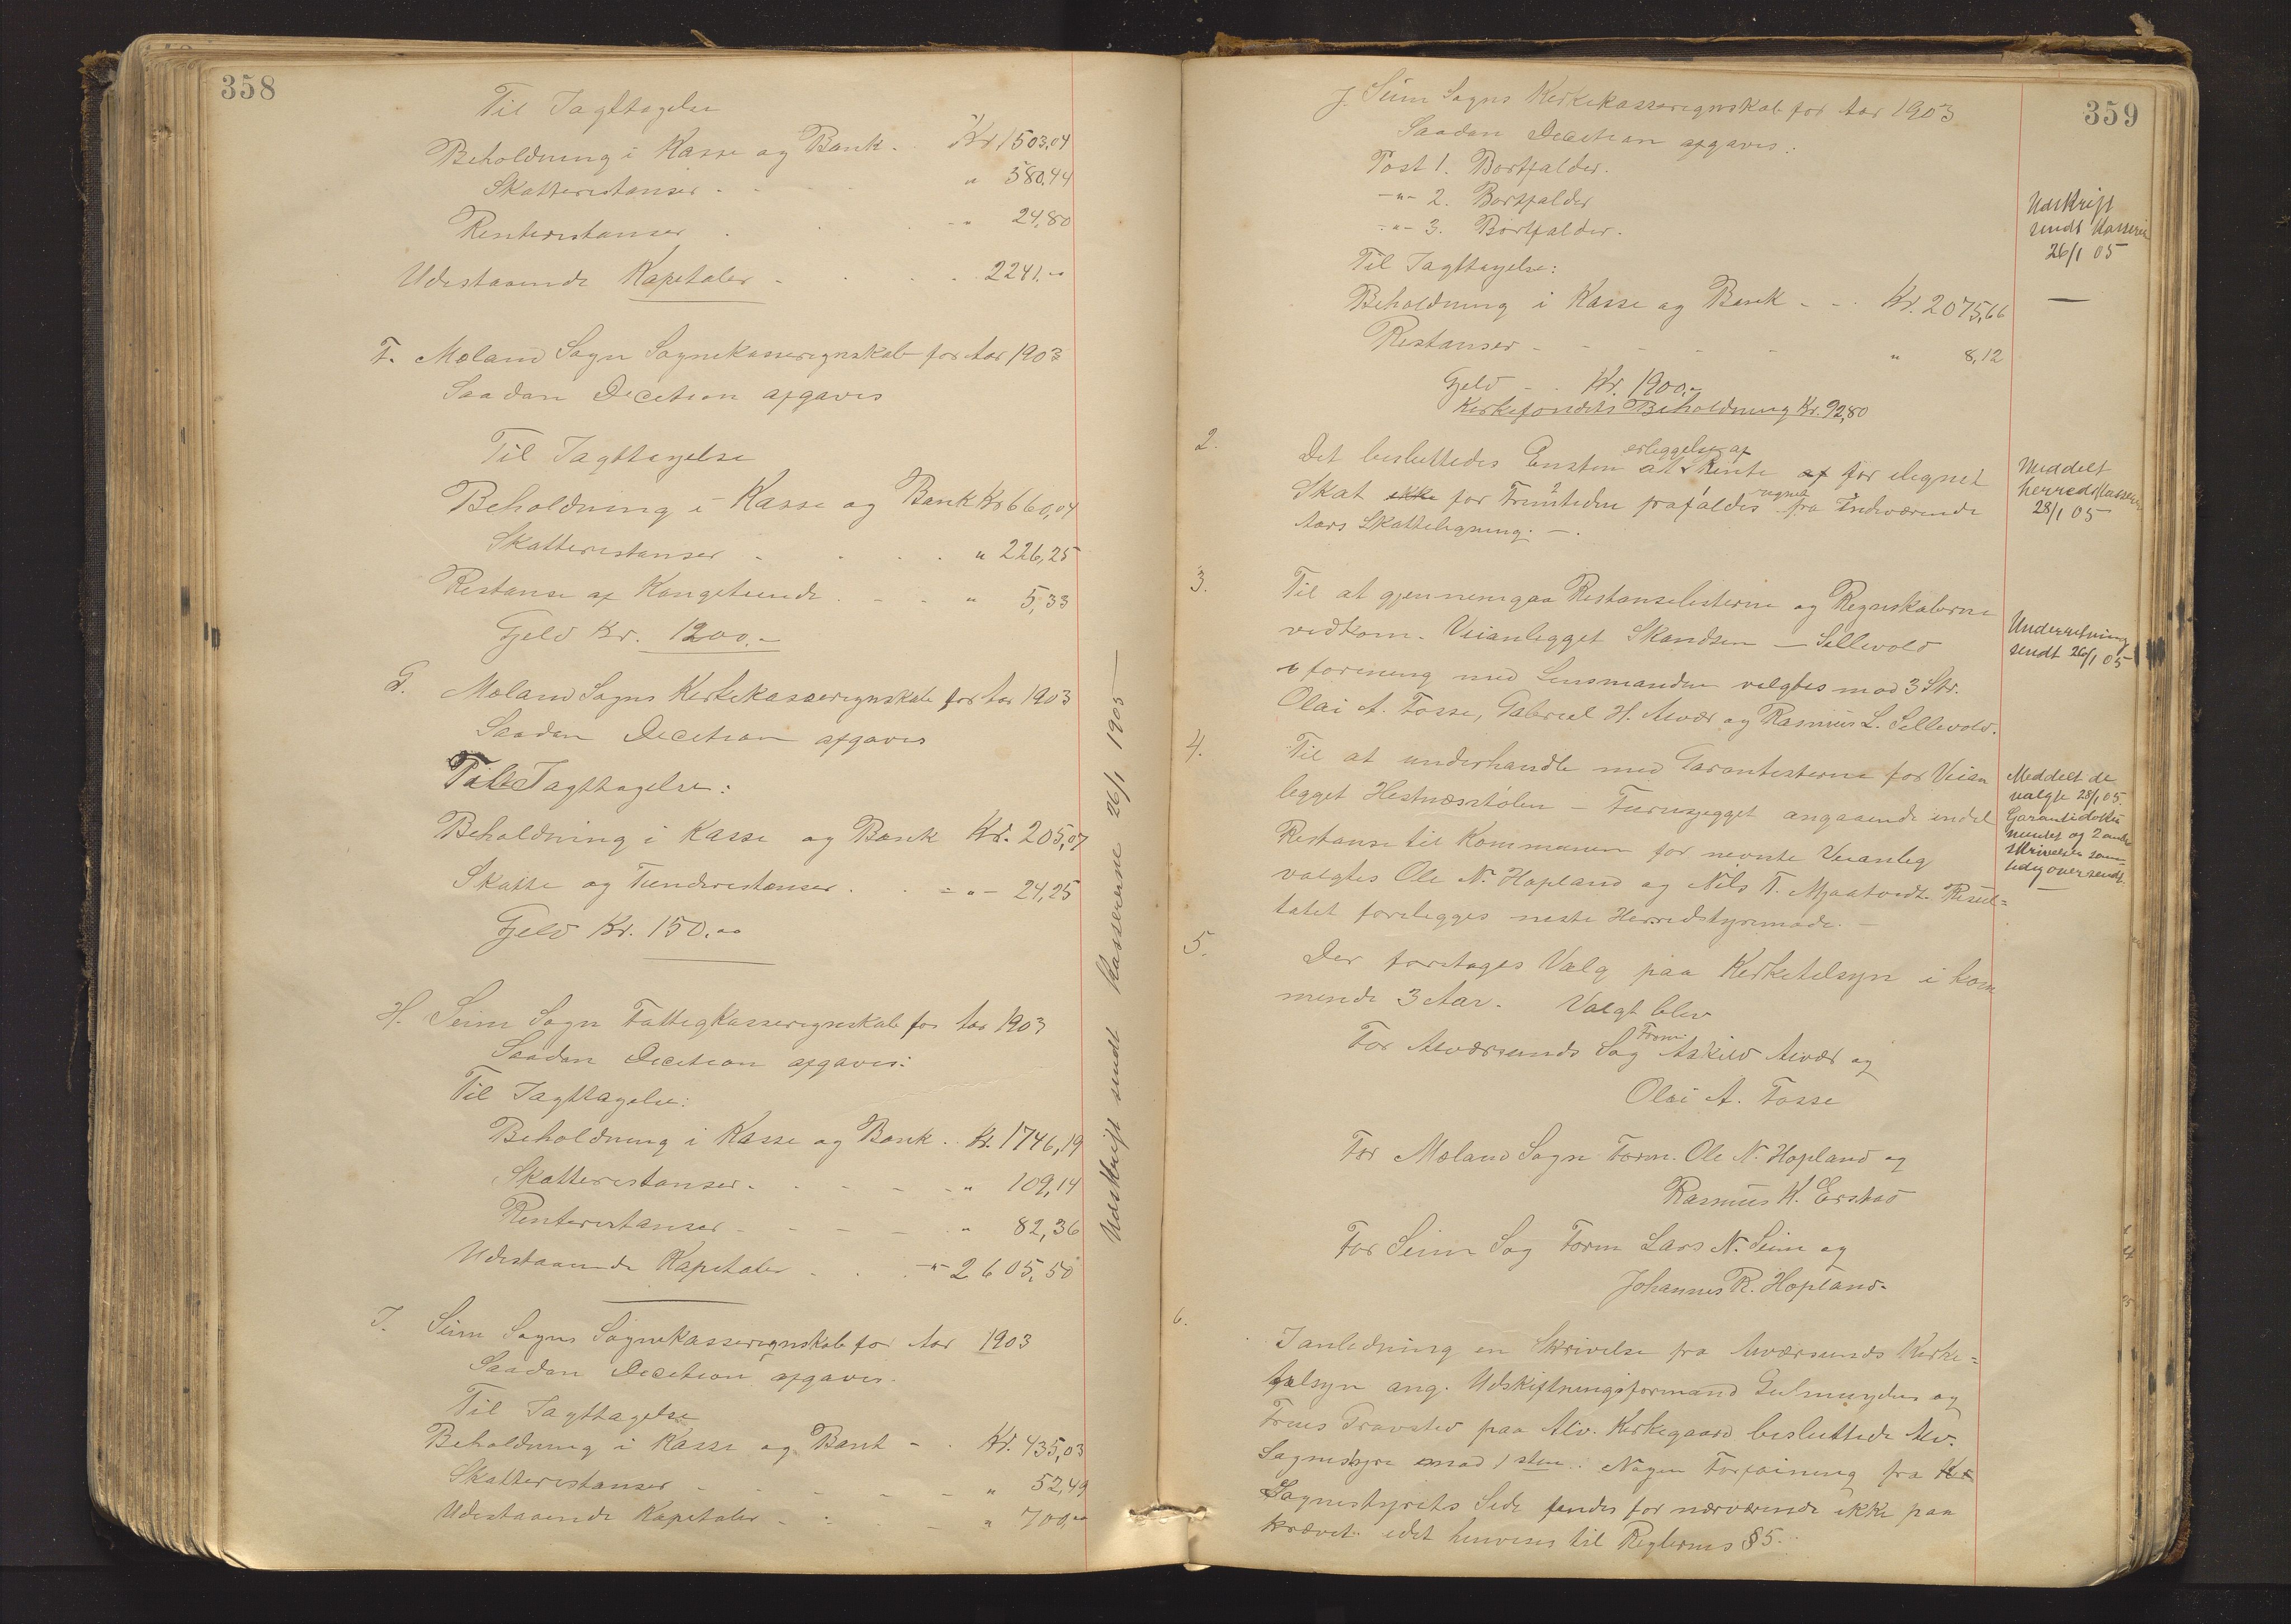 358
Til Iagttagelse
Beholdning i Kasse og Bank. Kr 1503,04
Skatterestanser - " 580,44
Renterestanser - " 24,80
Udestaaende Kapitaler - 2241.00
F. Mæland Sogn Sognekasseregnskab for Aar 1903
Saadan Decition afgaves
Til Iagttagelse
Beholdning i Kasse og Bank Kr 660,04
Skatterestanser - " 226,25
Restanse af Kongetiende - " 5,33
Gjeld Kr. 1200.-
G. Mæland Sogns Kirkekasseregnskab for Aar 1903
Saadan Decition afgaves
Til Iagttagelse:
Beholdning i Kasse og Bank Kr. 205,07
Skatte og Tienderestanser. - " - 24,25
Gjeld Kr. 150.00
H. Seim Sogn Fattigkasseregnskab for Aar 1903
Saadan Decition afgaves:
Til Iagttagelse:
Beholdning i Kasse og Bank. Kr. 1746,19
Skatterestanser - " 109,14
Renterestanser - " 82,36
Udestaaende Kapitaler - " - 2605,50
I. Seim Sogns Sognekasseregnskab for Aar 1903
Saadan Decition afgaves.
Til Iagttagelse
Beholdning i Kasse og Bank - Kr. 435,03
Skatterestanser - " 52,49
Udestaaende Kapitaler - " 700,00
Udskrift sendt Kassererne 26/1 1905
359
J. Seim Sogns Kirkekasseregnskab for Aar 1903
Saadan Decition afgaves:
Post 1. Bortfalder.
-"- 2. Bortfalder
-"- 3. Bortfalder.
Til Iagttagelse:
Beholdning i Kasse og Bank - Kr. 2075,66
Restanser - " 8,12
Gjeld - Kr. 1900.-
Kirkefondets Beholdning Kr. 92,80
Udskrift
sendt Kasserer
26/1 05
2. Det besluttedes Enstem at erleggelse af Rente af for ilegnet
Skat ikke for Fremtiden frafaldes regnet fra Indeværende
Aars Skatteligning. -
Meddelt
herredskasserer
28/1 05
3. Til at gjennemgaa Restanselisterne og Regnskaberne
vedkom. Veianlegget Skandsen - Sellevold
i forening med Lensmanden valgtes mod 3 Str.
Olai A. Fosse, Gabriel H. Alvær og Rasmus L. Sellevold.
Underretning
sendt 26/1 05
4. Til at underhandle med Garantisterne for Veian
legget Hestnæsstølen - angaaende endel
Restanse til Kommunen for nevnte Veianleg
valgtes Ole N. Hopland og Nils T. Mjaatvedt. Resul=
tatet forelegges neste Herredstyremøde. -
Meddelt de
valgte 28/1 05.
Garantidoku
mentet og 2 andre
skrivelser sam-
tidig oversendt.
5. Der foretages Valg paa Kirketilsyn i kom
mende 3 Aar. Valgt blev
For Alværsunds Sog Form Askild Alvær og
Olai A. Fosse
For Mæland Sogn Form. Ole N. Hopland og
Rasmus K. Erstad
For Seim Sog Form Lars N. Seim og
Johannes R. Hopland.
6. I anledning en Skrivelse fra Alværsunds Kirke=
tilsyn ang. Udskiftningsformand og
Frues Gravsted paa Alv. Kirkegaard besluttede Alv.
Sognestyre mod 1 stem. Nogen Forføining fra
Sognestyrets Side findes for nærværende ikke paa
krævet. idet henvises til Reglernes § 5.